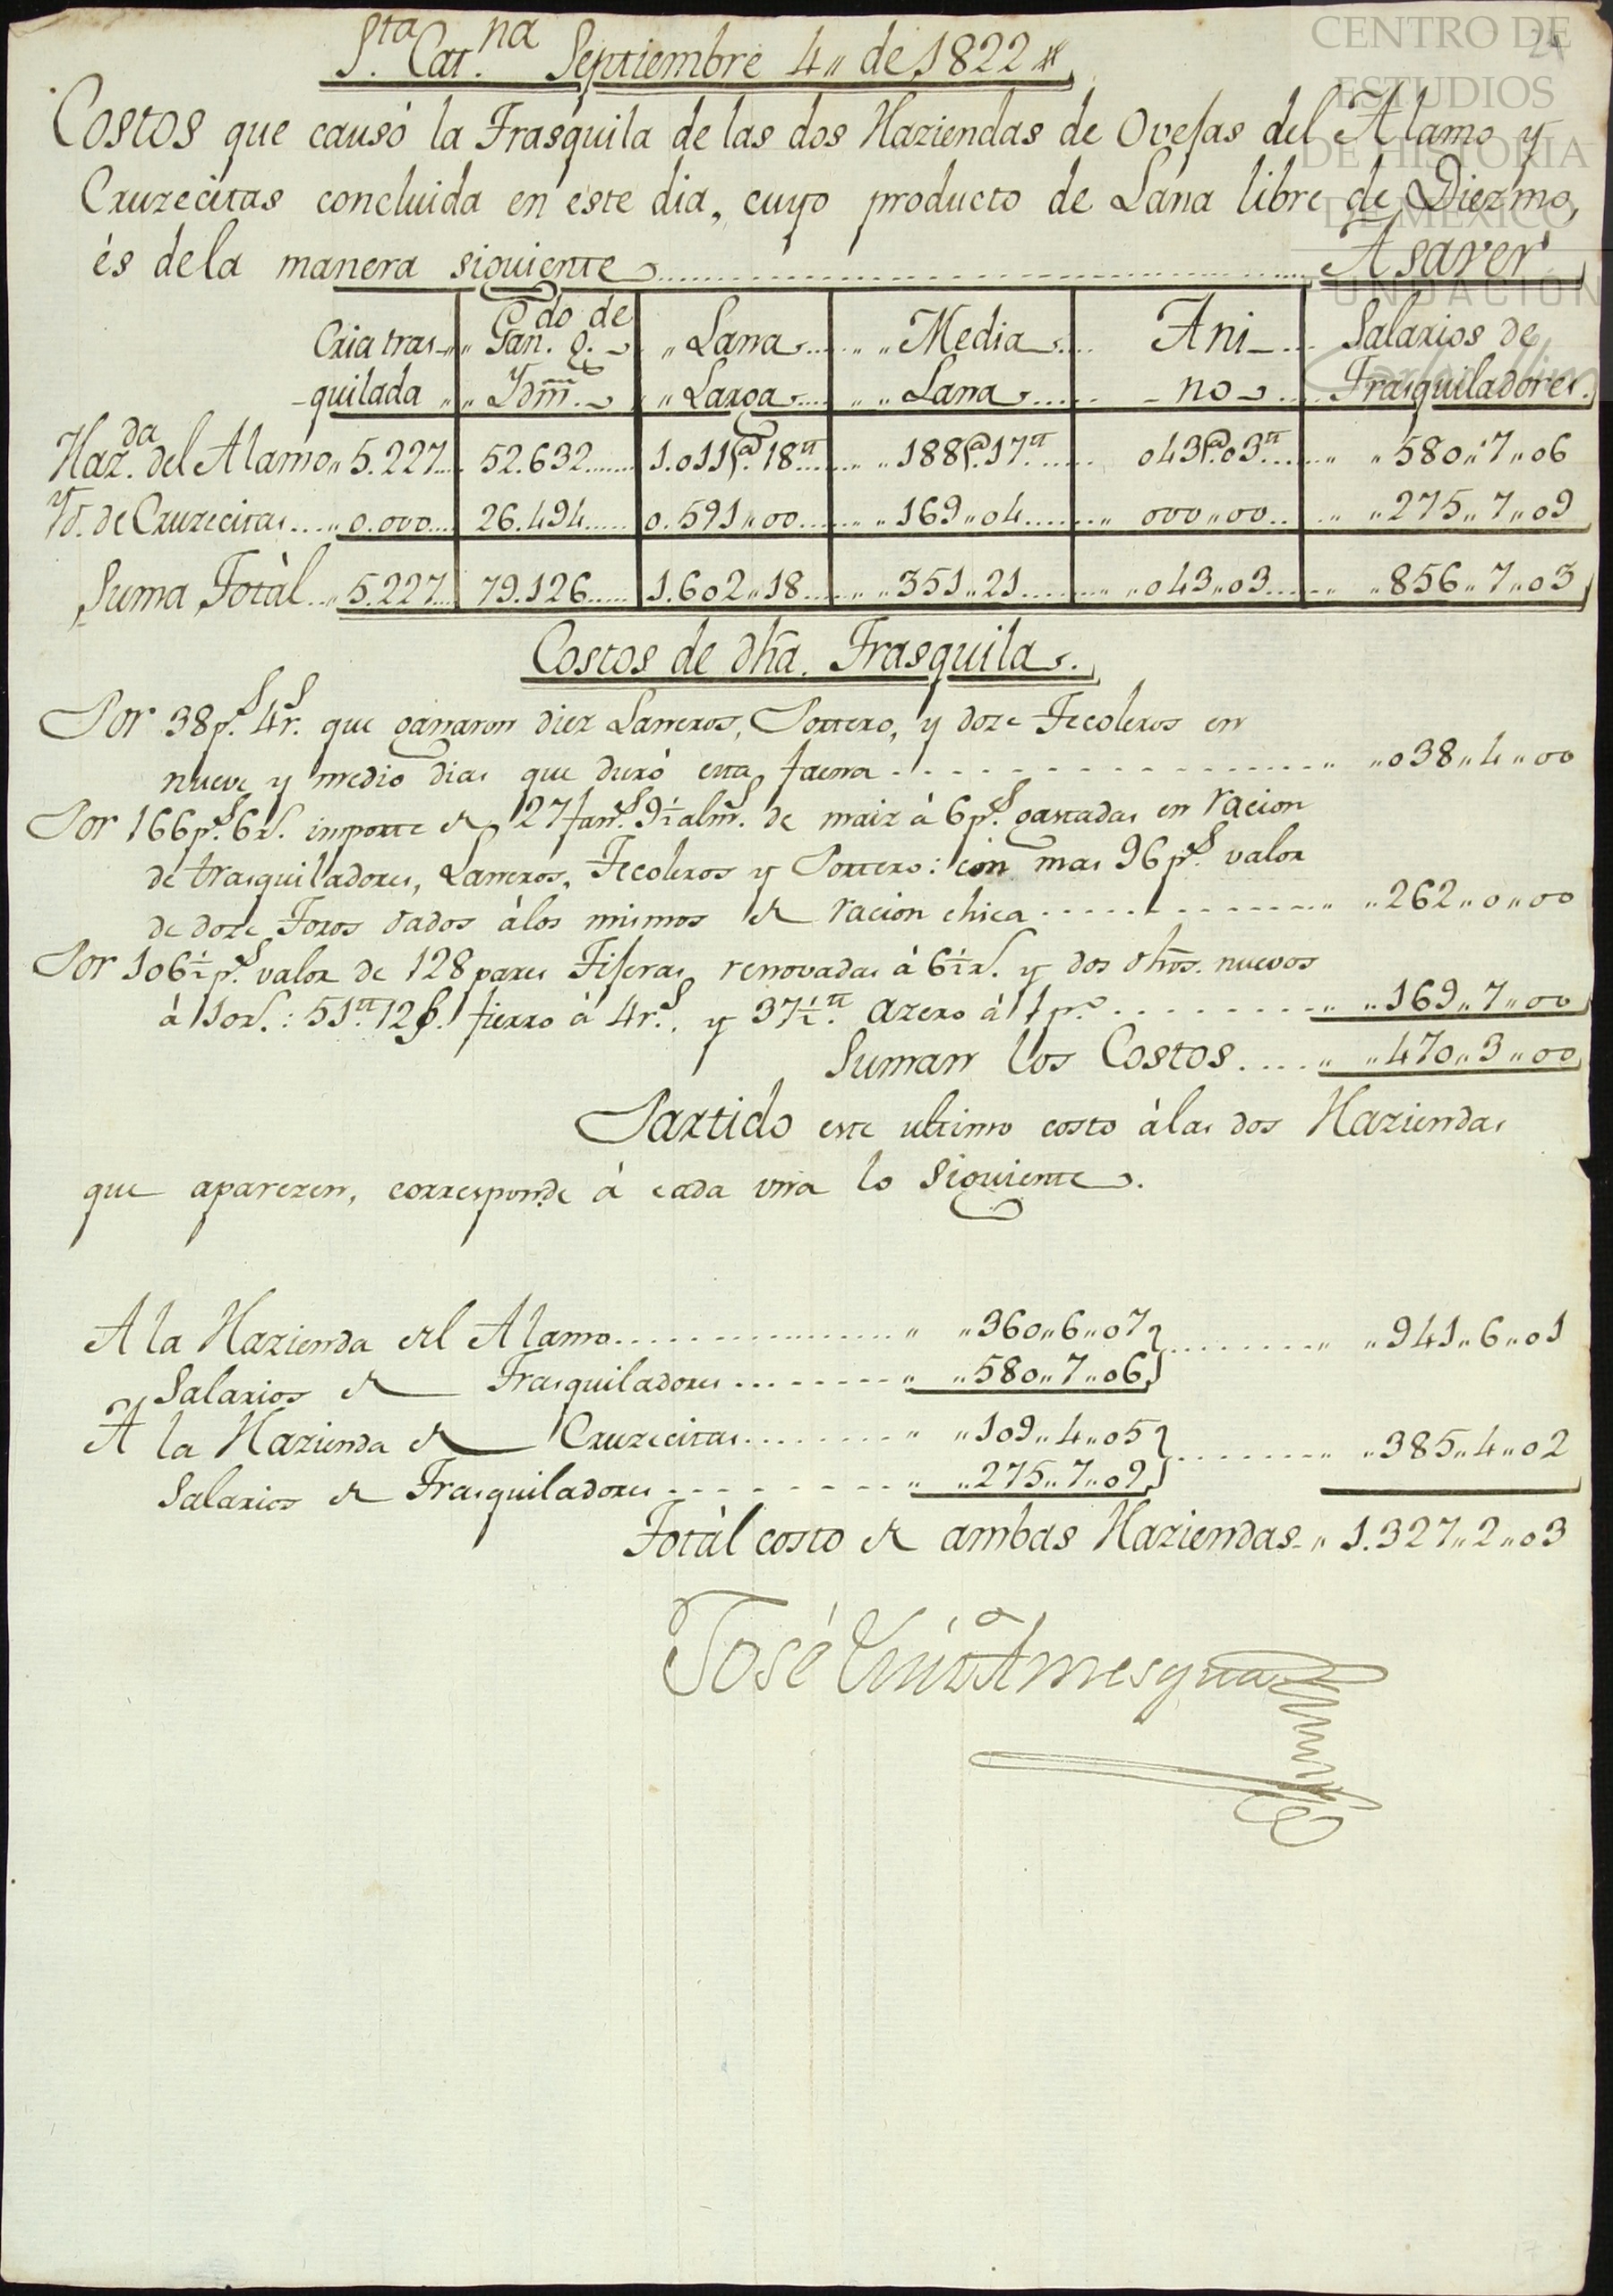 Sta. Catna. Septiembre 4,, de 1822,,
Costos que causó la Trasquila de las dos Haziendas de Ovejas del Alamo y
Cruzecitas concluida en este dia, cuyo producto de Lana libre de Diezmo,
és dela manera siguiente Asaver
Cria tras- Gando. de g. ,, Lana ,, ,, Media Ani- Salarios de
-quilada ,, ,, Ydm. ,, Larga ,, ,, Lana -no Trasquiladores.
Hazda. del Alamo ,, 5.227 52.632 1.011@.18tt ,, ,, 188@.17tt 043@.03tt ,, ,, 580,,7,,06
Yd. de Cruzecitas ,, 0.000 26.494 0.591,,00 ,, ,, 169,,04 ,, 000,,00 ,, ,, 275,,7,,09
Suma Totàl ,, 5.227 79.126 1.602,,18 ,, ,, 351,,21 ,, ,, 043,,03 ,, ,, 856,,7,,03
Costos de dha. Trasquila.
Por 38ps. 4rs. que ganaron diez Laneros, Portero, y doze Tecoleros en
nueve y medio dias que duró esta faena ,, ,, 038,,4,,00
Por 166ps. 6rs. importe de 27fans. 9½alms. de maiz à 6ps. gastadas en racion
de trasquiladores, Laneros, Tecoleros y Portero: con mas 96ps. valor
de doze Toros dados àlos mismos de racion chica ,, ,, 262,,0,,00
Por 106½ps. valor de 128 pares Tiseras renovadas à 6½rs. y dos dhos. nuevos
à 10rs.: 51tt. 12 fierro à 4rs., y 37½tt. azero à 1po. ,, ,, 169,,7,,00
Suman los Costos ,, ,, 470,,3,,00
Partido este ultimo costo àlas dos Haziendas
que aparezen, corresponde à cada una lo siguiente.
A la Hazienda del Alamo ,, ,, 360,,6,,07 ,, ,, 941,,6,,01
Salarios de Trasquiladores ,, ,, 580,,7,,06
A la Hazienda de Cruzecitas ,, ,, 109,,4,,05 ,, ,, 385,,4,,02
Salarios de Trasquiladores ,, ,, 275,,7,,09
Totàl costo de ambas Haziendas ,, 1.327,,2,,03
José Amesqua
CENTRO DE
ESTUDIOS
DE HISTORIA
DE MÉXICO
FUNDACIÓN
Carlos Slim